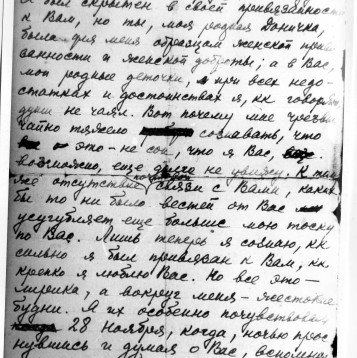 я был скрытен в своей привязанности
к Вам, но ты, моя родная Доничка,
была для меня образцом женской привя-
занности и женской доброты; а в Вас,
мои родные деточки, и при всех недо-
статках и достоинствах я, кк говорят,
души не чаял. Вот почему мне чрезвы-
чайно тяжело сознавать, что
это – не сон, что я Вас,
возможно, еще не увижу. К тому
же отсутствие связи с Вами, каких
бы то ни было вестей от Вас
усугубляет еще больше мою тоску
по Вас. Лишь теперь я сознаю, кк
сильно я был привязан к Вам, кк
крепко я люблю Вас. Но все это –
лирика, а вокруг меня – жестокие
будни. А их особенно почувствовал
28 Ноября, когда, ночью прос-
нувшись и думая о Вас, вспомнил